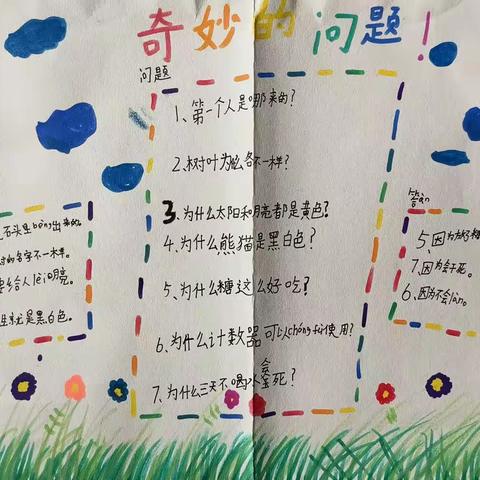 奇妙的问题！
问题
1、第一个人是哪来的？
2、树叶为么各不一样？
3、为什么太阳和月亮都是黄色？
4、为什么熊猫是黑白色？
5、为什么糖这么好吃？
6、为什么计数器可以chóng fù使用？
会
7、为什么三天不喝水死？
石头里bèng出来的。
的名字不一样。
给人lèi 亮。
就是黑白色。
答àn
5、因为放糖
7、因为会干死。
6、因为不会làn。